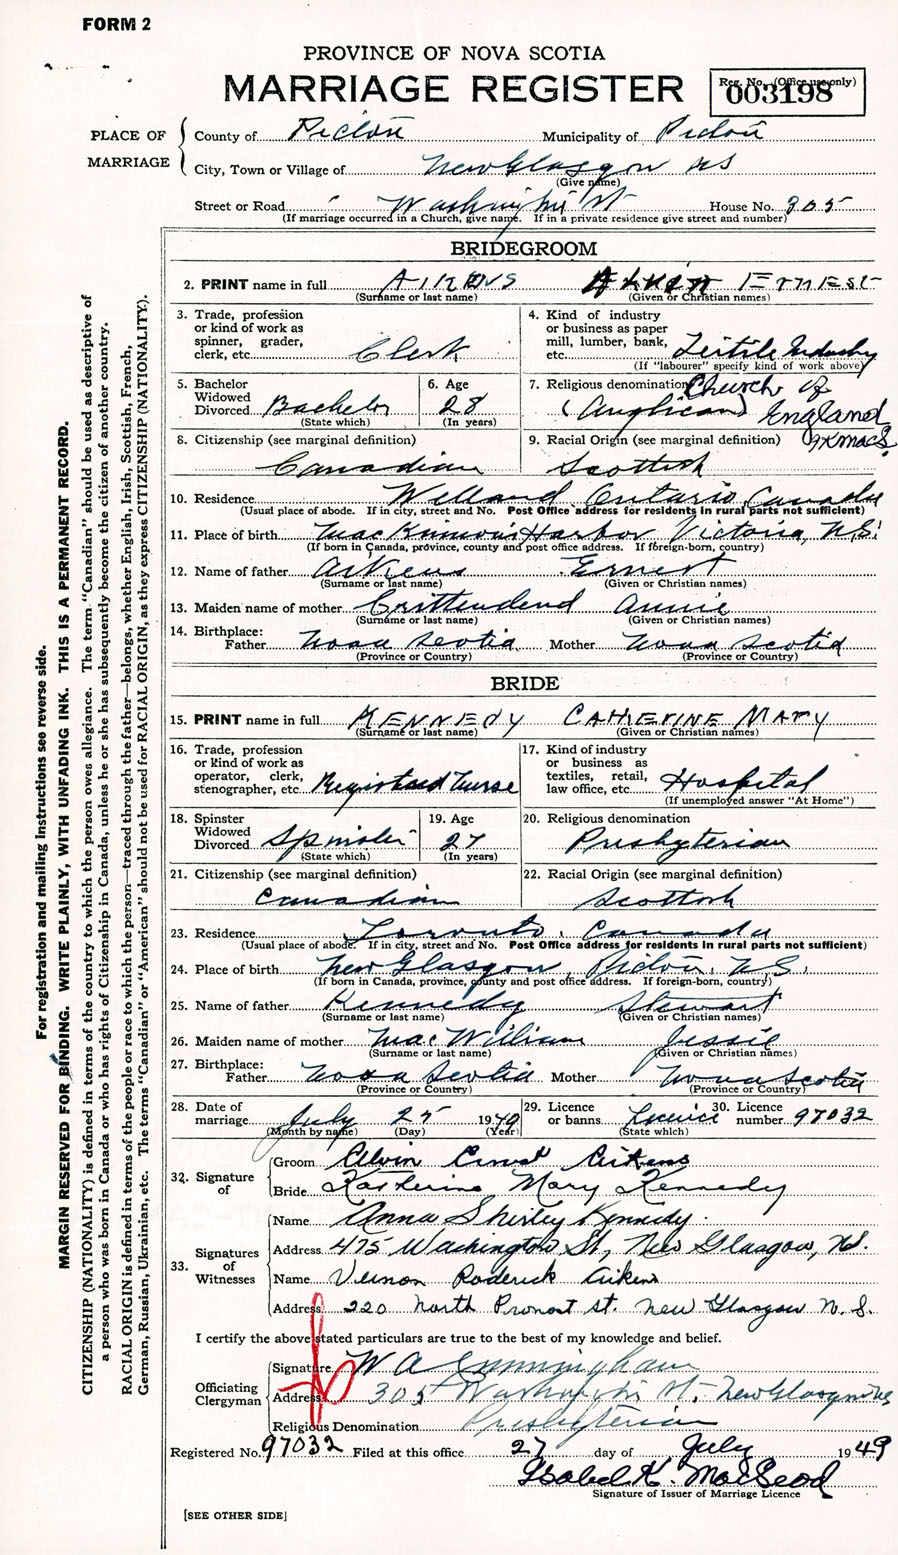 FORM 2
PROVINCE OF NOVA SCOTIA
MARRIAGE REGISTER
Reg. No. (Office use only)
003198
PLACE OF MARRIAGE
County of Pictou Municipality of Pictou
City, Town or Village of New Glasgow NS
(Give name)
Street or Road Washington St House No. 305
(If marriage occurred in a Church, give name. If in a private residence give street and number)
BRIDEGROOM
2. PRINT name in full AIKENS ALVIN ERNEST
(Surname or last name) (Given or Christian names)
3. Trade, profession or kind of work as spinner, grader, clerk, etc. Clerk
4. Kind of industry or business as paper mill, lumber, bank, etc. Textile Industry
(If "labourer" specify kind of work above)
5. Bachelor Widowed Divorced Bachelor
(State which)
6. Age 28
(In years)
7. Religious denomination Church of England
(Anglican)
IKMacS.
8. Citizenship (see marginal definition)
Canadian
9. Racial Origin (see marginal definition)
Scottish
10. Residence Welland Ontario Canada
(Usual place of abode. If in city, street and No. Post Office address for residents in rural parts not sufficient)
11. Place of birth MacKinnons Harbor Victoria, N.S.
(If born in Canada, province, county and post office address. If foreign-born, country)
12. Name of father Aikens Ernest
(Surname or last name) (Given or Christian names)
13. Maiden name of mother Crittendend Annie
(Surname or last name) (Given or Christian names)
14. Birthplace:
Father Nova Scotia Mother Nova Scotia
(Province or Country) (Province or Country)
BRIDE
15. PRINT name in full KENNEDY CATHERINE MARY
(Surname or last name) (Given or Christian names)
16. Trade, profession or kind of work as operator, clerk, stenographer, etc. Registered Nurse
17. Kind of industry or business as textiles, retail, law office, etc. Hospital
(If unemployed answer "At Home")
18. Spinster Widowed Divorced Spinster
(State which)
19. Age 27
(In years)
20. Religious denomination
Presbyterian
21. Citizenship (see marginal definition)
Canadian
22. Racial Origin (see marginal definition)
Scottish
23. Residence Toronto, Canada
(Usual place of abode. If in city, street and No. Post Office address for residents in rural parts not sufficient)
24. Place of birth New Glasgow, Pictou, N.S.
(If born in Canada, province, county and post office address. If foreign-born, country)
25. Name of father Kennedy Stewart
(Surname or last name) (Given or Christian names)
26. Maiden name of mother MacWilliam Jessie
(Surname or last name) (Given or Christian names)
27. Birthplace:
Father Nova Scotia Mother Nova Scotia
(Province or Country) (Province or Country)
28. Date of marriage July 25 1949
(Month by name) (Day) (Year)
29. Licence or banns Licence
(State which)
30. Licence number 97032
32. Signature of
Groom Alvin Ernest Aikens
Bride Katherine Mary Kennedy
33. Signatures of Witnesses
Name Anna Shirley Kennedy.
Address 475 Washington St, New Glasgow, N.S.
Name Vernon Roderick Aikens
Address 220 North Provost St. New Glasgow N.S.
I certify the above stated particulars are true to the best of my knowledge and belief.
Officiating Clergyman
Signature W A Cunningham
Address 305 Washington St. New Glasgow NS
Religious Denomination Presbyterian
Registered No. 97032 Filed at this office 27 day of July 1949
Isabel K. MacLeod
Signature of Issuer of Marriage Licence
[SEE OTHER SIDE]
For registration and mailing instructions see reverse side.
MARGIN RESERVED FOR BINDING. WRITE PLAINLY, WITH UNFADING INK. THIS IS A PERMANENT RECORD.
CITIZENSHIP (NATIONALITY) is defined in terms of the country to which the person owes allegiance. The term "Canadian" should be used as descriptive of
a person who was born in Canada or who has rights of Citizenship in Canada, unless he or she has subsequently become the citizen of another country.
RACIAL ORIGIN is defined in terms of the people or race to which the person—traced through the father—belongs, whether English, Irish, Scottish, French,
German, Russian, Ukrainian, etc. The terms "Canadian" or "American" should not be used for RACIAL ORIGIN, as they express CITIZENSHIP (NATIONALITY).